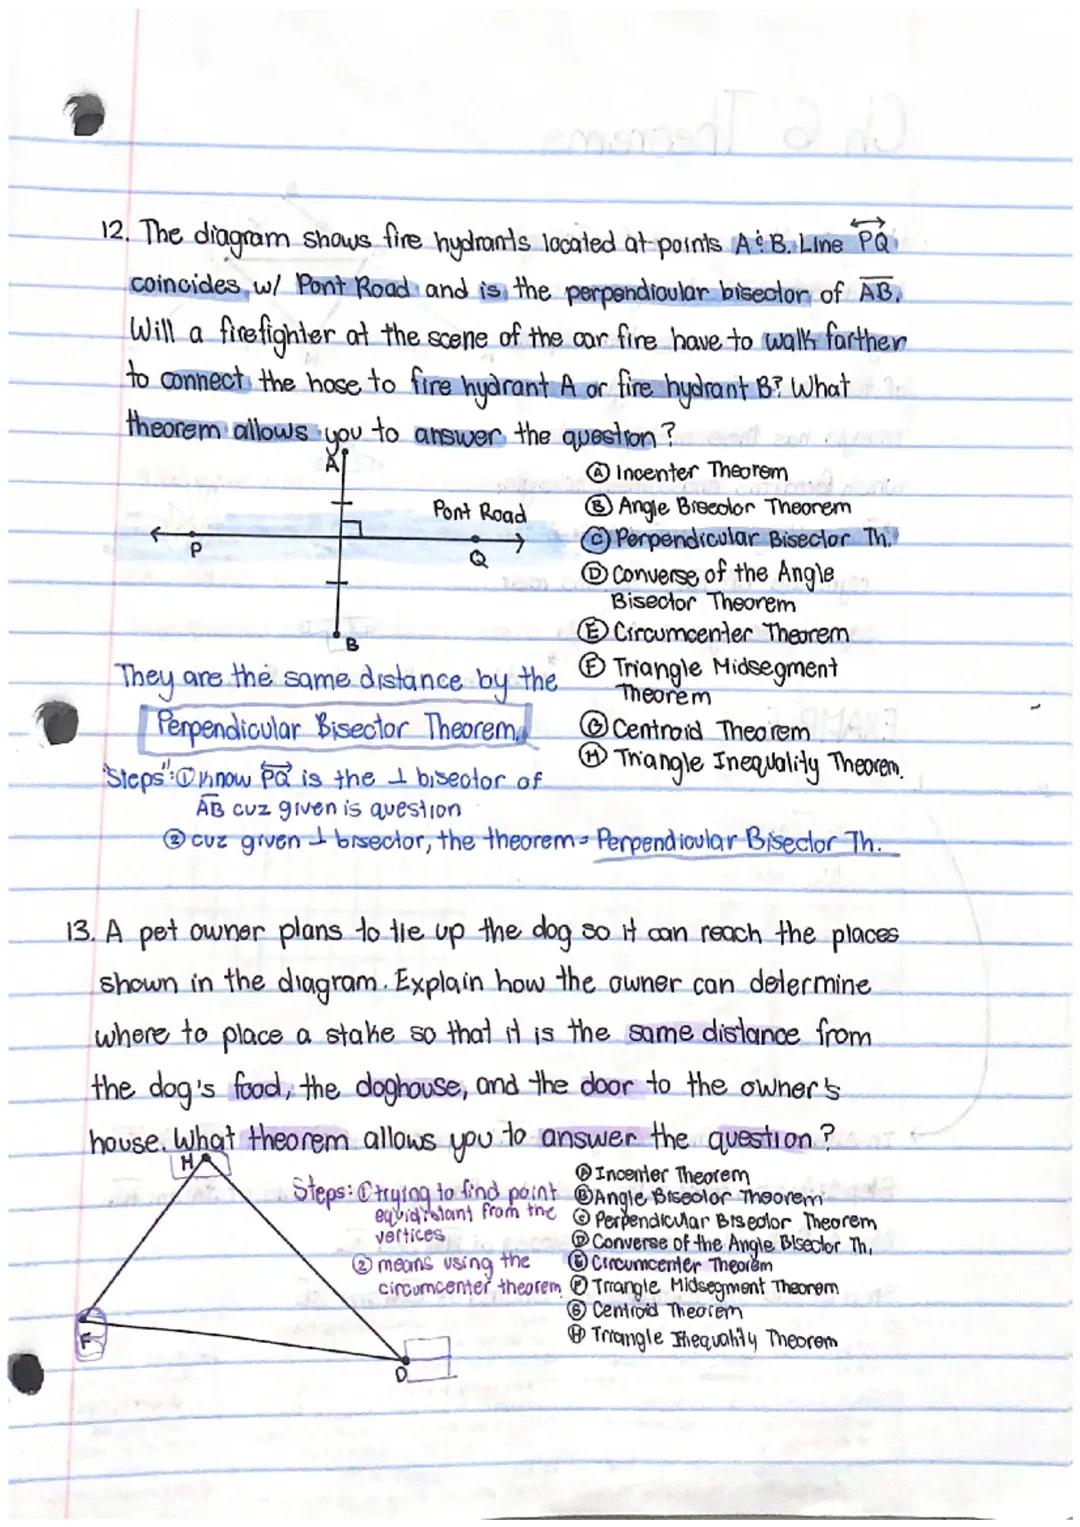 12. The diagram shows fire hydrants located at points A & B. Line PQ
coincides w/ Pont Road and is the perpendicular bisector of AB.
Will a firefighter at the scene of the car fire have to walk farther
to connect the hose to fire hydrant A or fire hydrant B? What
theorem allows you to answer the question?
A
Pont Road
P
Q
B
Ⓐ Incenter Theorem
Ⓑ Angle Bisector Theorem
Ⓒ Perpendicular Bisector Th.
Ⓓ Converse of the Angle
Bisector Theorem
Ⓔ Circumcenter Theorem
Ⓕ Triangle Midsegment
Theorem
Ⓖ Centroid Theorem
Ⓗ Triangle Inequality Theorem.
They are the same distance by the
Perpendicular Bisector Theorem.
"Steps": ① know PQ is the ⊥ bisector of
AB cuz given is question
② cuz given ⊥ bisector, the theorem = Perpendicular Bisector Th.
13. A pet owner plans to tie up the dog so it can reach the places
shown in the diagram. Explain how the owner can determine
where to place a stake so that it is the same distance from
the dog's food, the doghouse, and the door to the owner's
house. What theorem allows you to answer the question?
H
F
D
Steps: ① trying to find point
equidistant from the
vertices
② means using the
circumcenter theorem
Ⓐ Incenter Theorem
Ⓑ Angle Bisector Theorem
Ⓒ Perpendicular Bisector Theorem
Ⓓ Converse of the Angle Bisector Th.
Ⓔ Circumcenter Theorem
Ⓕ Triangle Midsegment Theorem
Ⓖ Centroid Theorem
Ⓗ Triangle Inequality Theorem